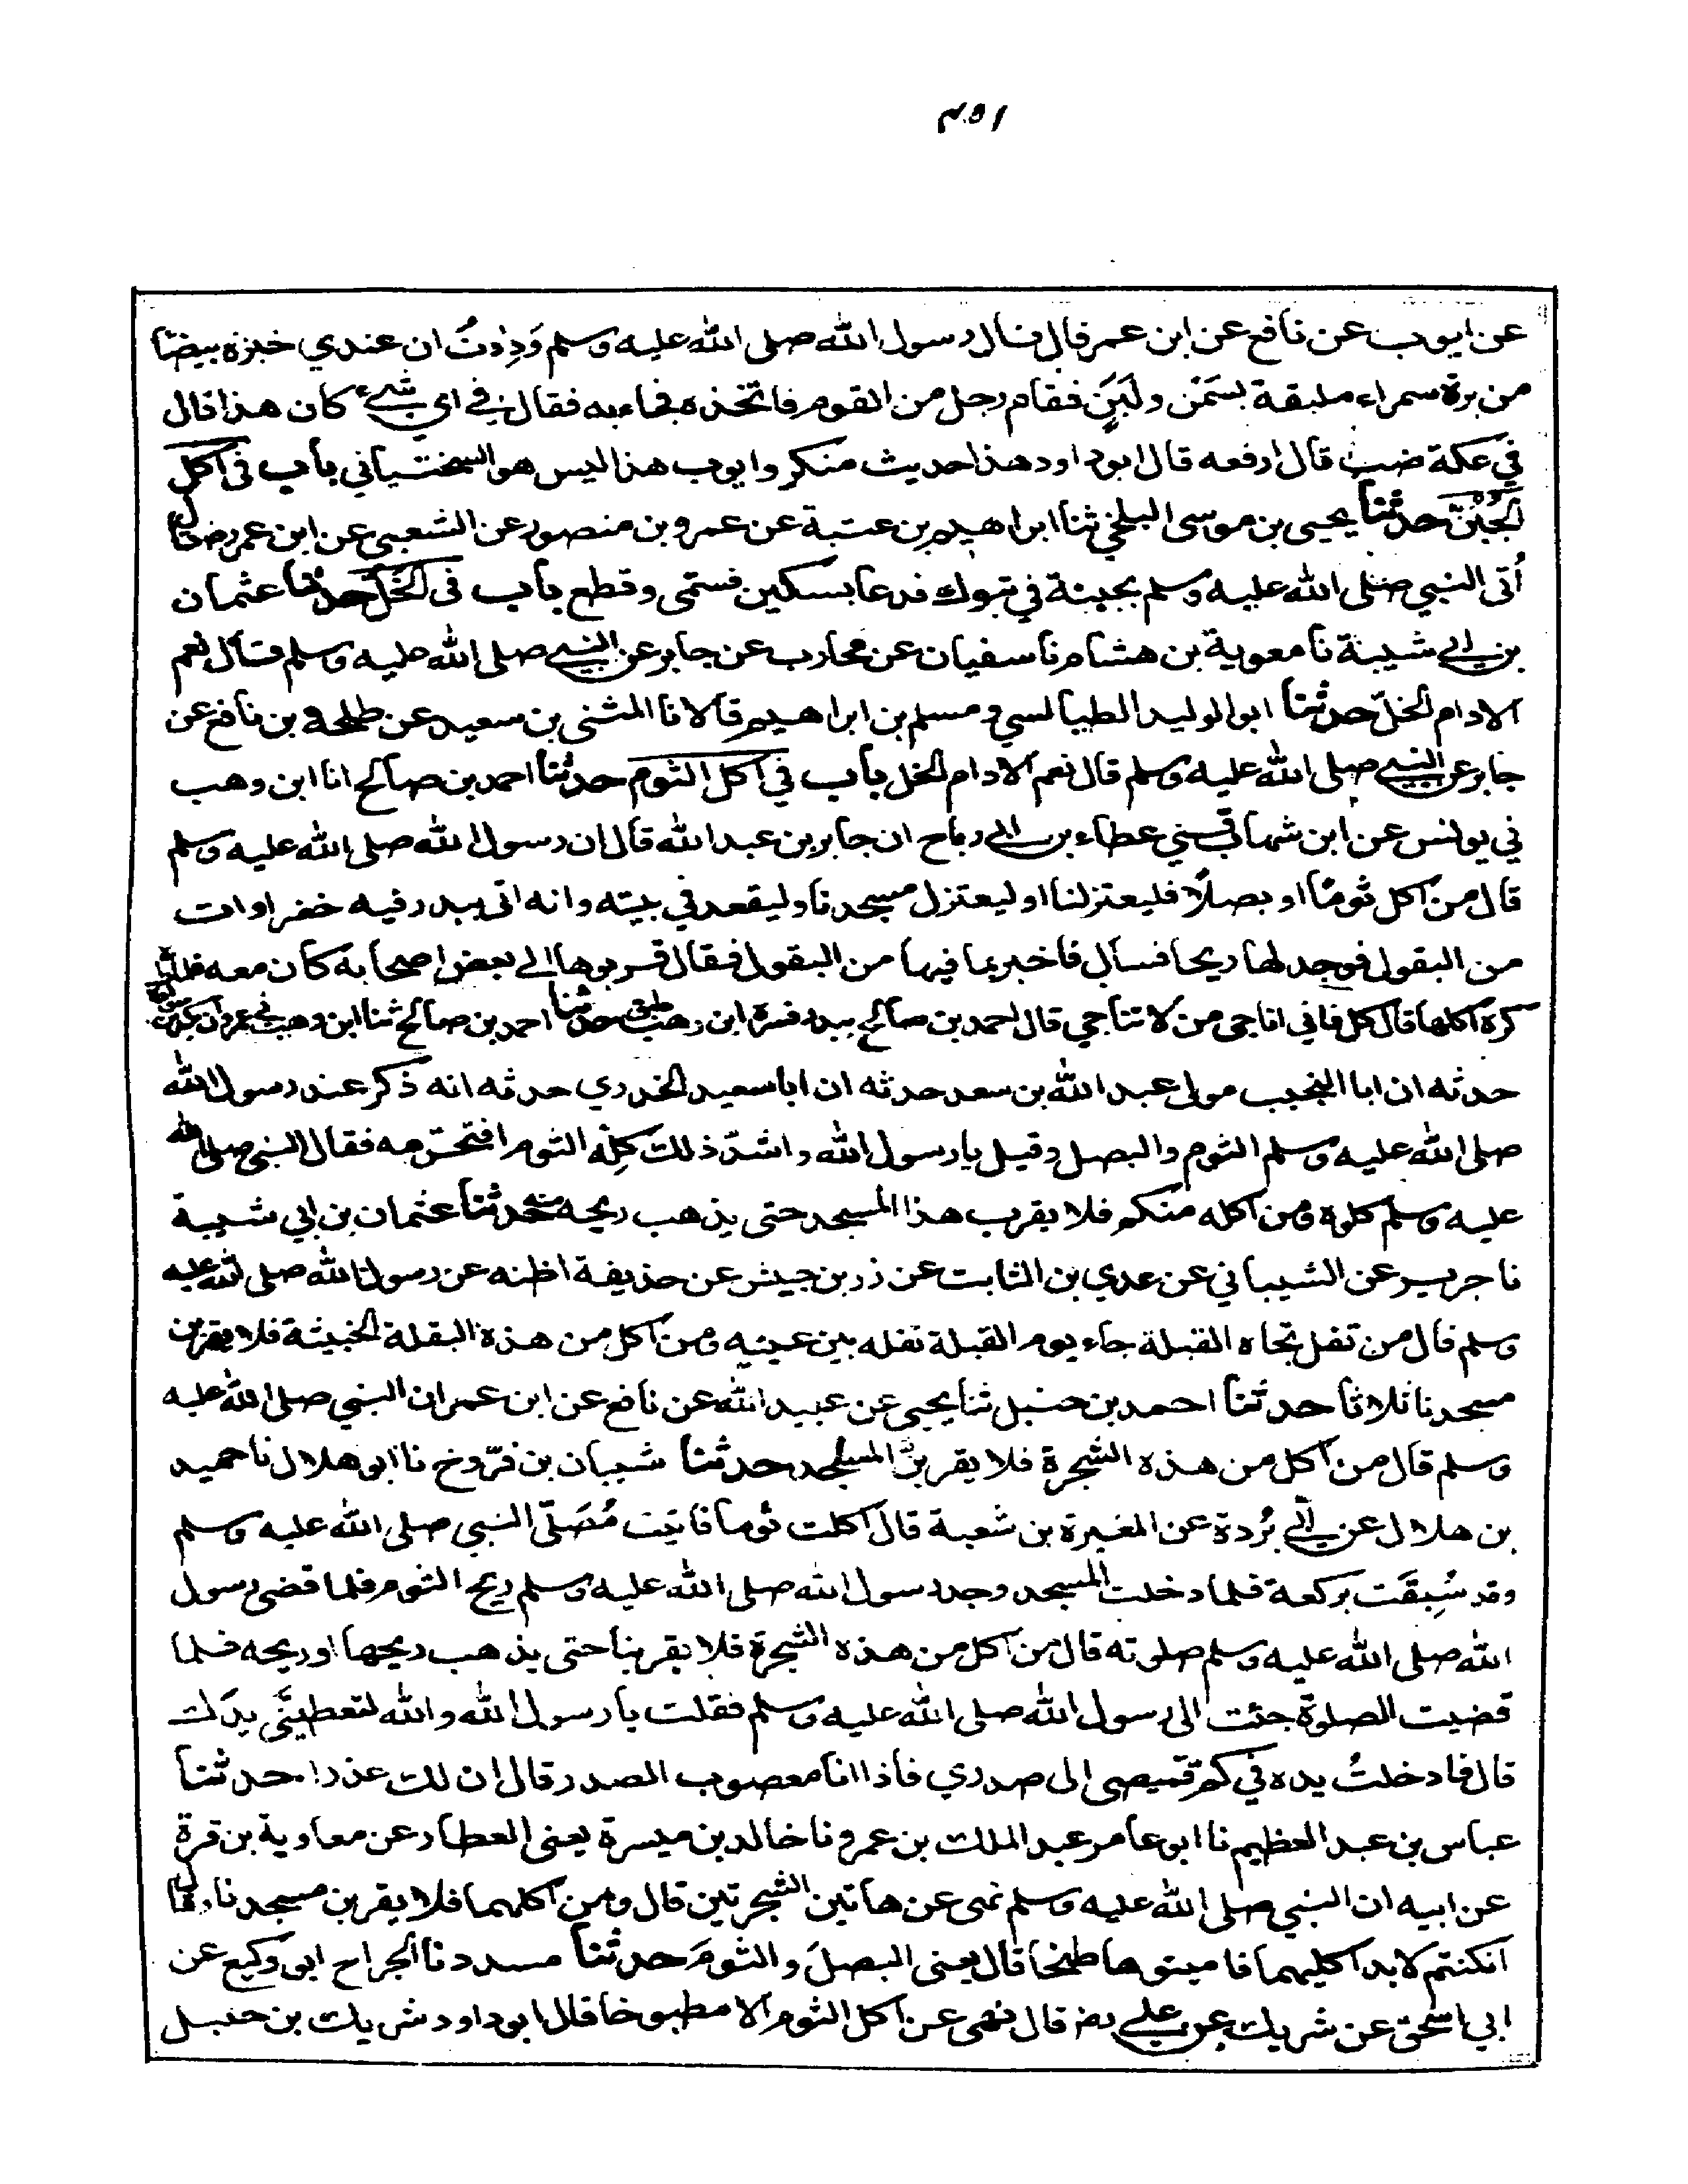 عن ايوب عن نافع عن ابن عمر قال قال رسول الله صلى الله عليه وسلم وَدِدْتُ ان عندي خبزة بيضا
من برة سمراء ملبقة بسَمْن ولَبَنٍ فقام رجل من القوم فاتخذه فجاء به فقال في اي شيء كان هذا قال
في عكة ضب قال ارفعه قال ابو داود هذا حديث منكر وايوب هذا ليس هو السختياني باب فى اكل
الجُبُنّ حدثنا يحيى بن موسى البلخي ثنا ابراهيم بن عتبة عن عمرو بن منصور عن الشعبي عن ابن عمر رض قال
أُتى النبي صلى الله عليه وسلم بجبنة في تبوك فدعا بسكين فسمى وقطع باب فى الخل حدثنا عثمان
بن ابي شيبة نا معوية بن هشام نا سفيان عن محارب عن جابر عن النبي صلى الله عليه وسلم قال نعم
الادام الخلّ حدثنا ابو الوليد الطيالسي ومسلم بن ابراهيم قالا نا المثنى بن سعيد عن طلحة بن نافع عن
جابر عن النبي صلى الله عليه وسلم قال نعم الادام الخل باب في اكل الثوم حدثنا احمد بن صالح انا ابن وهب
ني يونس عن ابن شهاب ثني عطاء بن ابي رباح ان جابر بن عبد الله قال ان رسول الله صلى الله عليه وسلم
قال من اكل ثومًا او بصلًا فليعتزلنا او ليعتزل مسجدنا وليقعد في بيته وانه اتى ببدر فيه خضراوات
من البقول فوجد لها ريحا فسأل فاخبر بما فيها من البقول فقال قربوها الى بعض اصحابه كان معه فلما
كره اكلها قال كل فاني اناجي من لا تناجي قال احمد بن صالح ببدر فسره ابن وهب طبق حدثنا احمد بن صالح ثنا ابن وهب ني عمرو ان بكر بن
حدثه ان ابا النجيب مولى عبد الله بن سعد حدثه ان ابا سعيد الخدري حدثه انه ذكر عند رسول الله
صلى الله عليه وسلم الثوم والبصل وقيل يا رسول الله واشدّ ذلك كلِّه الثوم افتحرّمه فقال النبي صلى الله
عليه وسلم كلوه ومن اكله منكم فلا يقرب هذا المسجد حتى يذهب ريحه منه حدثنا عثمان بن ابي شيبة
نا جرير عن الشيباني عن عدي بن الثابت عن زر بن حبيش عن حذيفة اظنه عن رسول الله صلى الله عليه
وسلم قال من تفل تجاه القبلة جاء يوم القبلة تفله بين عينيه ومن اكل من هذه البقلة الخبيثة فلا يقربن
مسجدنا ثلاثا حدثنا احمد بن حنبل ثنا يحيى عن عبيد الله عن نافع عن ابن عمر ان النبي صلى الله عليه
وسلم قال من اكل من هذه الشجرة فلا يقربنّ المسجد حدثنا شيبان بن فرّوخ نا ابو هلال نا حميد
بن هلال عن ابي بُردة عن المغيرة بن شعبة قال اكلت ثوما فاتيت مُصَلّى النبي صلى الله عليه وسلم
وقد سُبِقَت بركعة فلما دخلت المسجد وجد رسول الله صلى الله عليه وسلم ريح الثوم فلما قضى رسول
الله صلى الله عليه وسلم صلوته قال من اكل من هذه الشجرة فلا يقربنا حتى يذهب ريحها او ريحه فلما
قضيت الصلوة جئت الى رسول الله صلى الله عليه وسلم فقلت يا رسول الله والله لتعطينّي يدك
قال فادخلتُ يده في كم قميصي الى صدري فاذا انا معصوب الصدر قال ان لك عذرا حدثنا
عباس بن عبد العظيم نا ابو عامر عبد الملك بن عمرو نا خالد بن ميسرة يعنى العطار عن معاوية بن قرة
عن ابيه ان النبي صلى الله عليه وسلم نهى عن هاتين الشجرتين قال ومن اكلهما فلا يقربن مسجدنا وقال
ان كنتم لا بد اكليهما فاميتوهما طبخا قال يعنى البصلَ والثومَ حدثنا مسدد نا الجراح ابو وكيع عن
ابي اسحق عن شريك عن علي رض قال نهى عن اكل الثوم الا مطبوخا قال ابو داود شريك بن حنبل